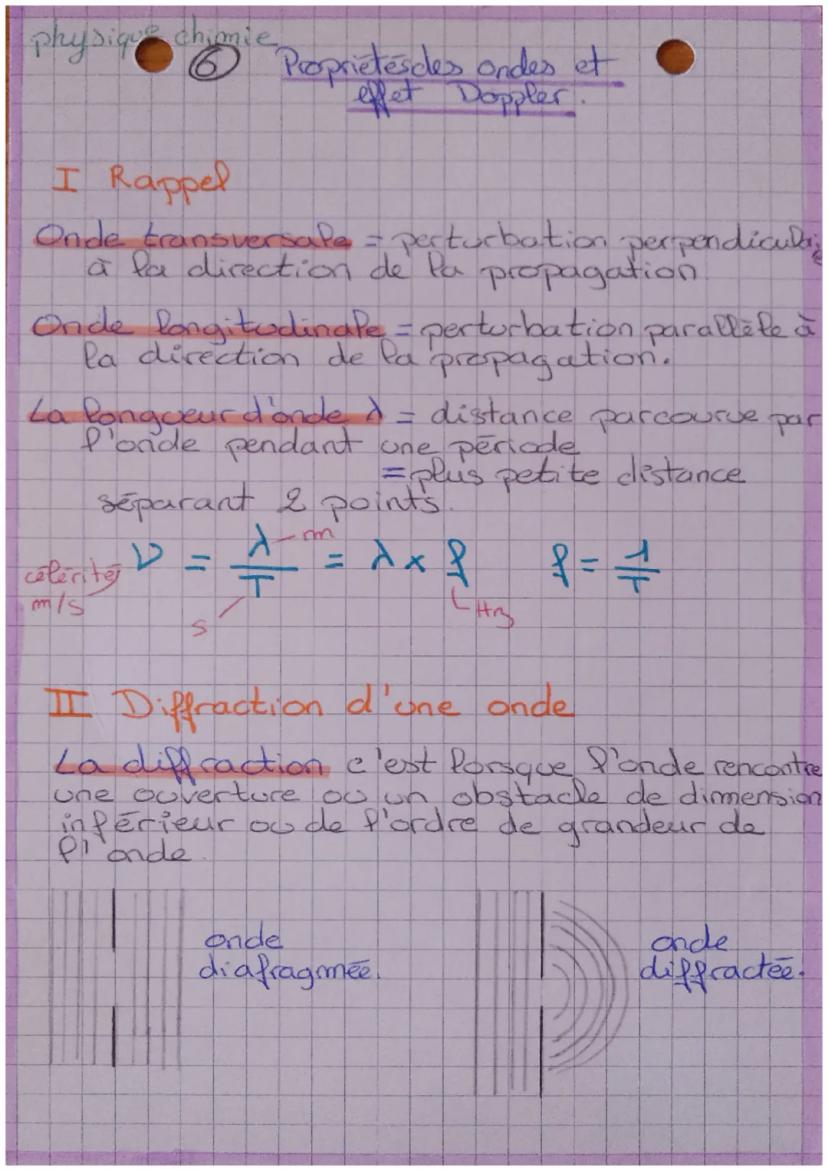 physique chimie
⑥ Propriétés des ondes et
effet Doppler.
I Rappel
Onde transversale = perturbation perpendiculaire
à la direction de la propagation
Onde longitudinale = perturbation parallèle à
la direction de la propagation.
La longueur d'onde λ = distance parcourue par
l'onde pendant une période
= plus petite distance
séparant 2 points.
célérité m/s V = λ/T = λ × f f = 1/T
m
s
Hz
II Diffraction d'une onde
La diffraction c'est lorsque l'onde rencontre
une ouverture ou un obstacle de dimmension
inférieur ou de l'ordre de grandeur de
l'onde.
onde
diafragmée.
onde
diffractée.